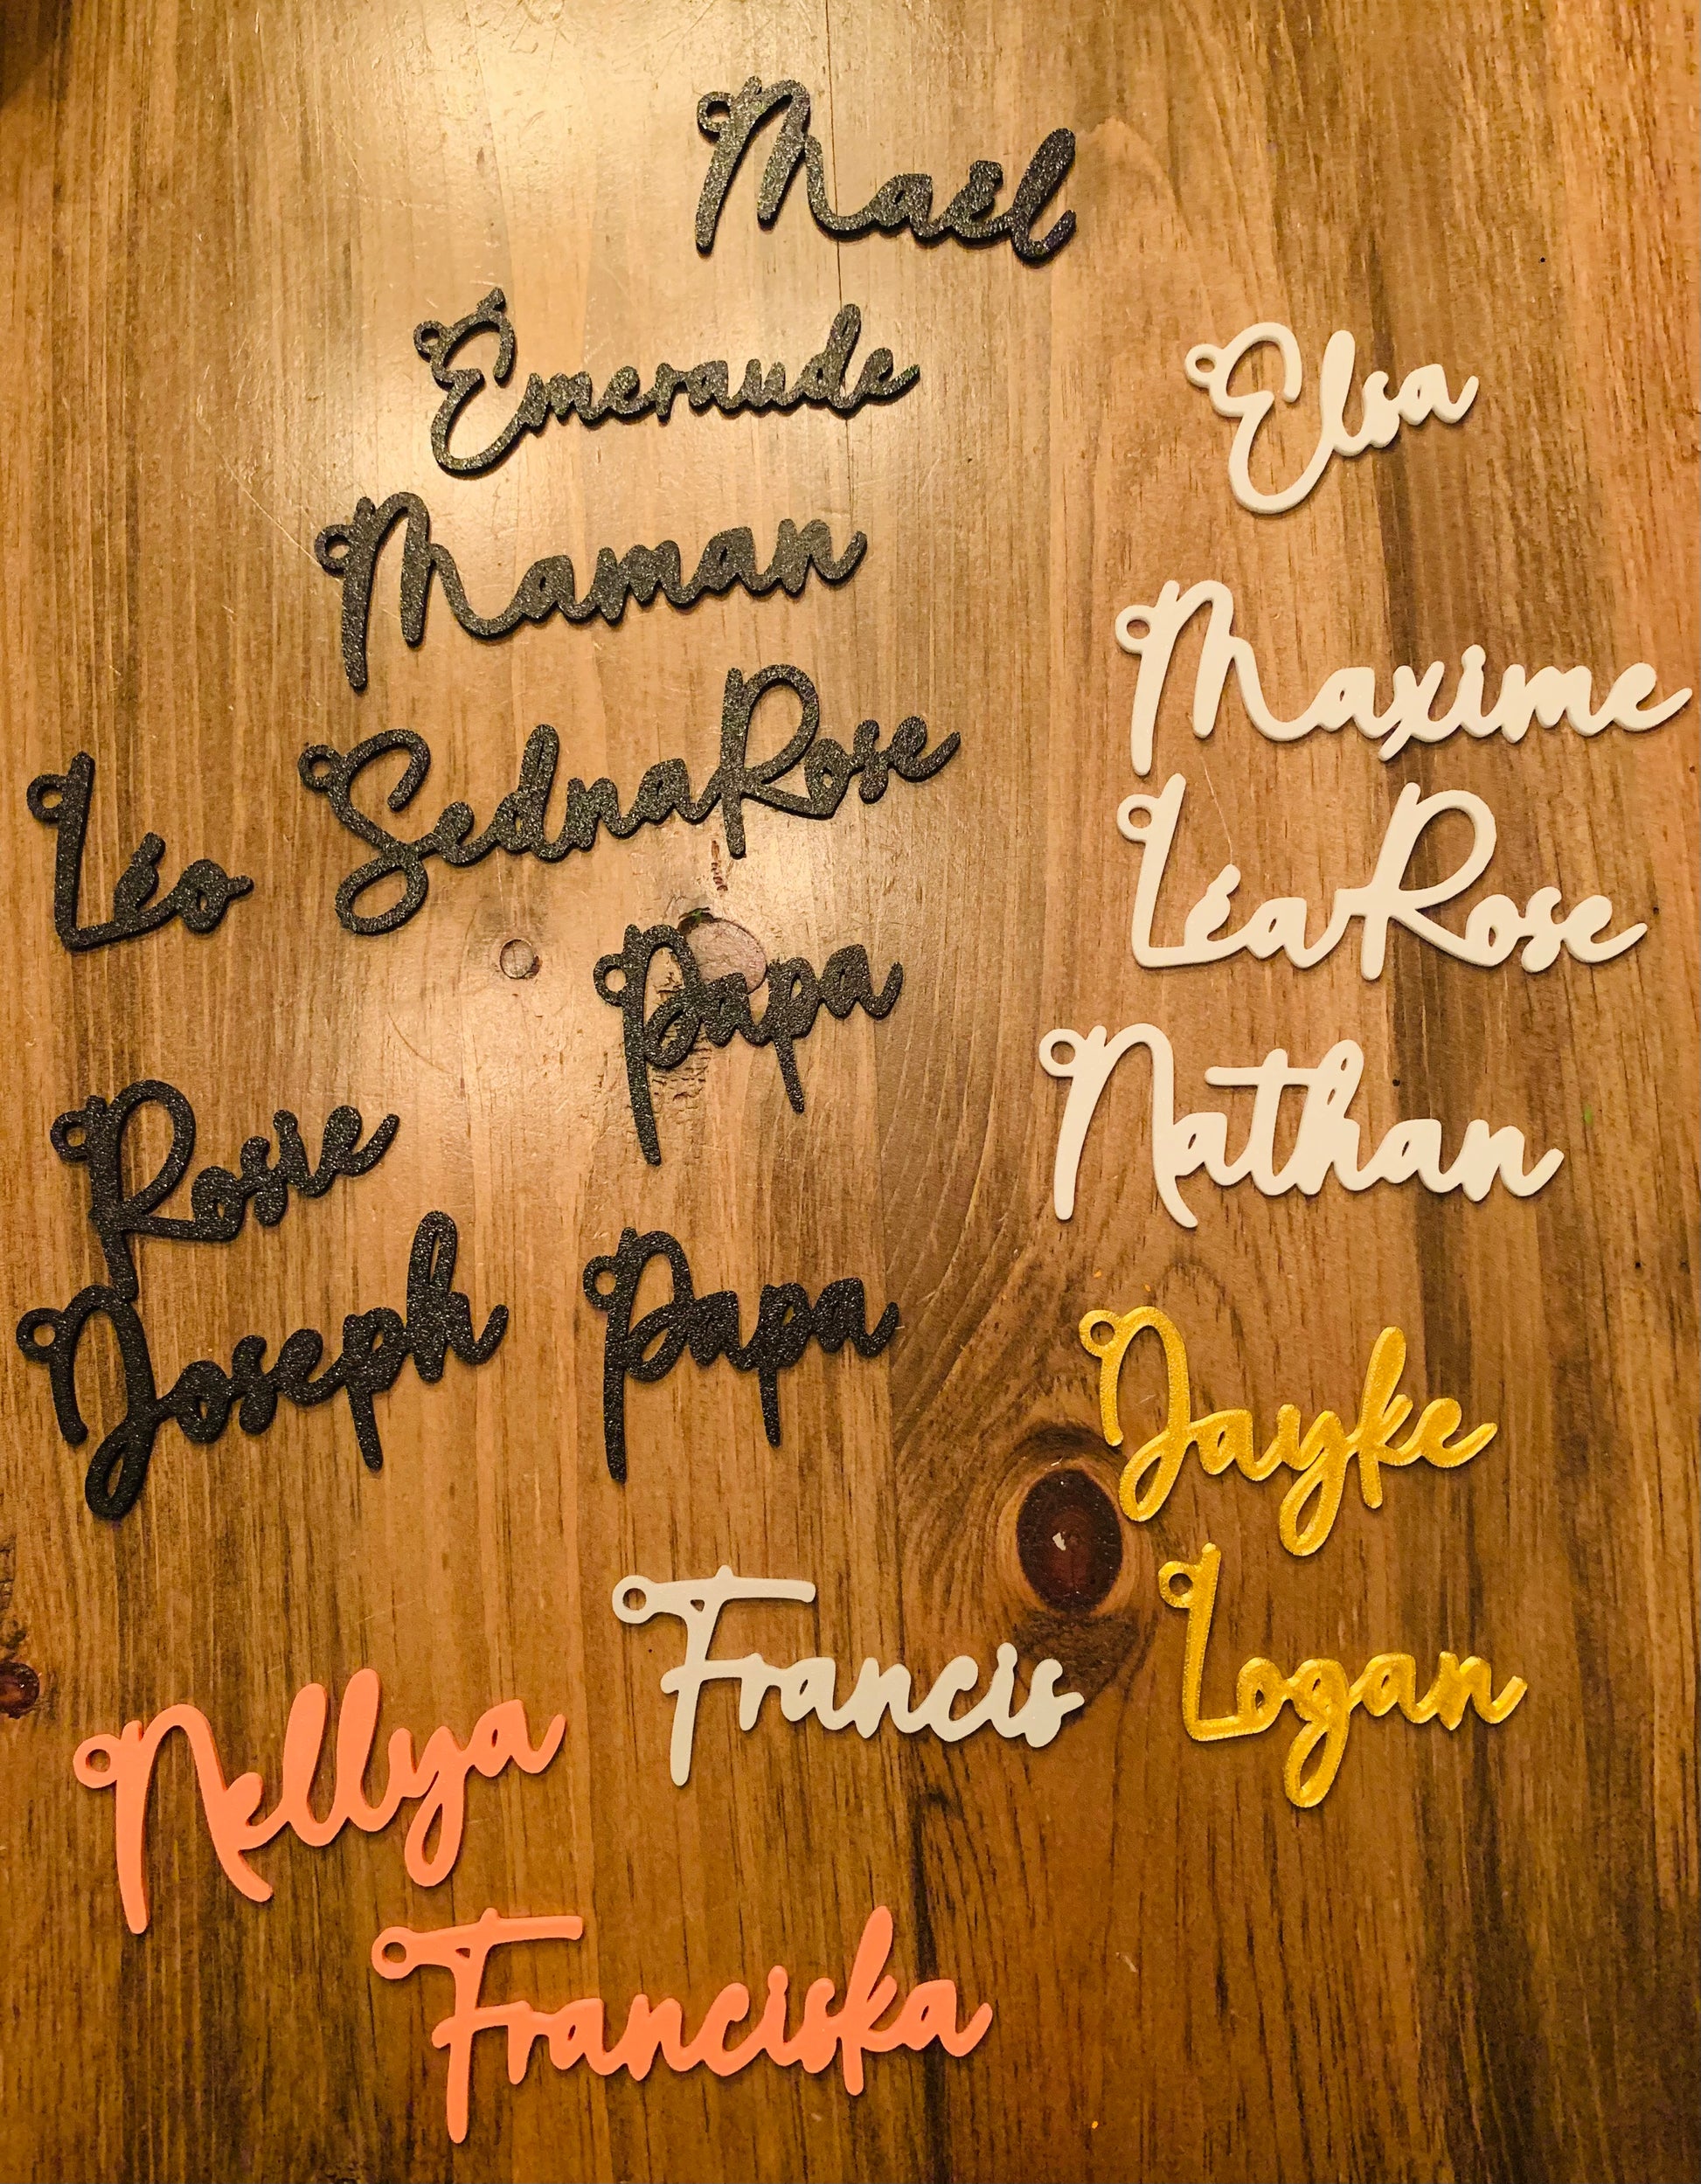 Maël
Émeraude
Elsa
Maman
Maxime
SednaRose
Léo
LéaRose
Papa
Nathan
Rosie
Joseph
Papa
Jayke
Francis
Logan
Nellya
Franciska